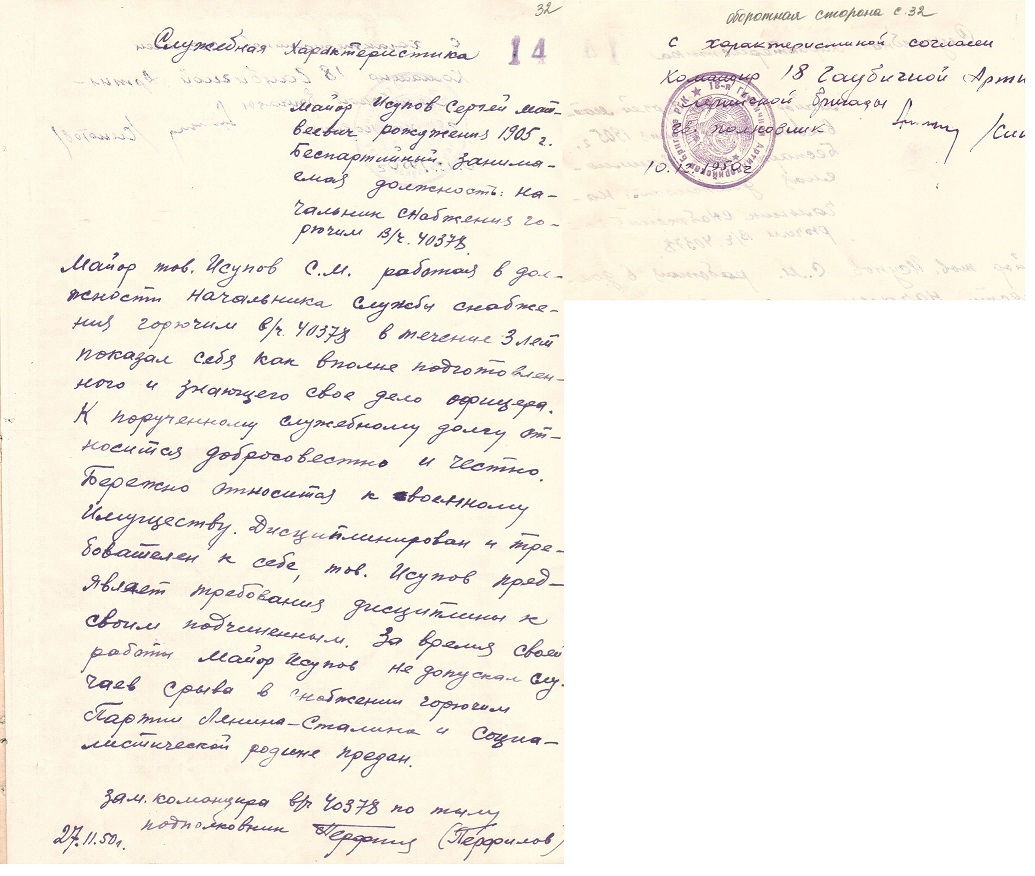 32
14
Служебная характеристика
Майор Исупов Сергей Мат-
веевич рождения 1905 г.
Беспартийный. Занима-
емая должность: на-
чальник снабжения го-
рючим в/ч. 40378.
Майор тов. Исупов С.М. работая в дол-
жности начальника службы снабже-
ния горючим в/ч. 40378 в течение 3 лет
показал себя как вполне подготовлен-
ного и знающего свое дело офицера.
К порученному служебному долгу от-
носится добросовестно и честно.
Бережно относится к военному
имуществу. Дисциплинирован и тре-
бователен к себе, тов. Исупов пред-
являет требования дисциплины к
своим подчиненным. За время своей
работы майор Исупов не допускал слу-
чаев срыва в снабжении горючим
Партии Ленина-Сталина и социа-
листической родине предан.
Зам. командира в/ч 40378 по тылу
подполковник (Перфилов)
27.11.50г.
оборотная сторона с. 32
С характеристикой согласен
Командир 18 Гаубичной Арти
ллерийской бригады
гв. полковник
10. 1950г